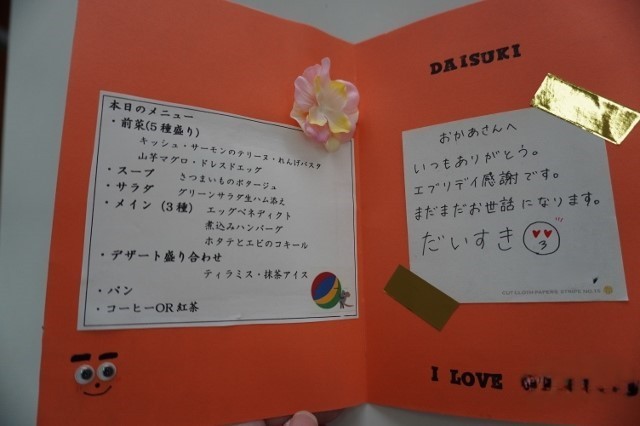 本日のメニュー
・前菜(5種盛り)
キッシュ・サーモンのテリーヌ・れんげパスタ
山芋マグロ・ドレスドエッグ
・スープ さつまいものポタージュ
・サラダ グリーンサラダ生ハム添え
・メイン（3種） エッグベネディクト
煮込みハンバーグ
ホタテとエビのコキール
・デザート盛り合わせ
ティラミス・抹茶アイス
・パン
・コーヒーOR紅茶
DAISUKI
おかあさんへ
いつもありがとう。
エブリデイ感謝です。
まだまだお世話になります。
だいすき
I LOVE